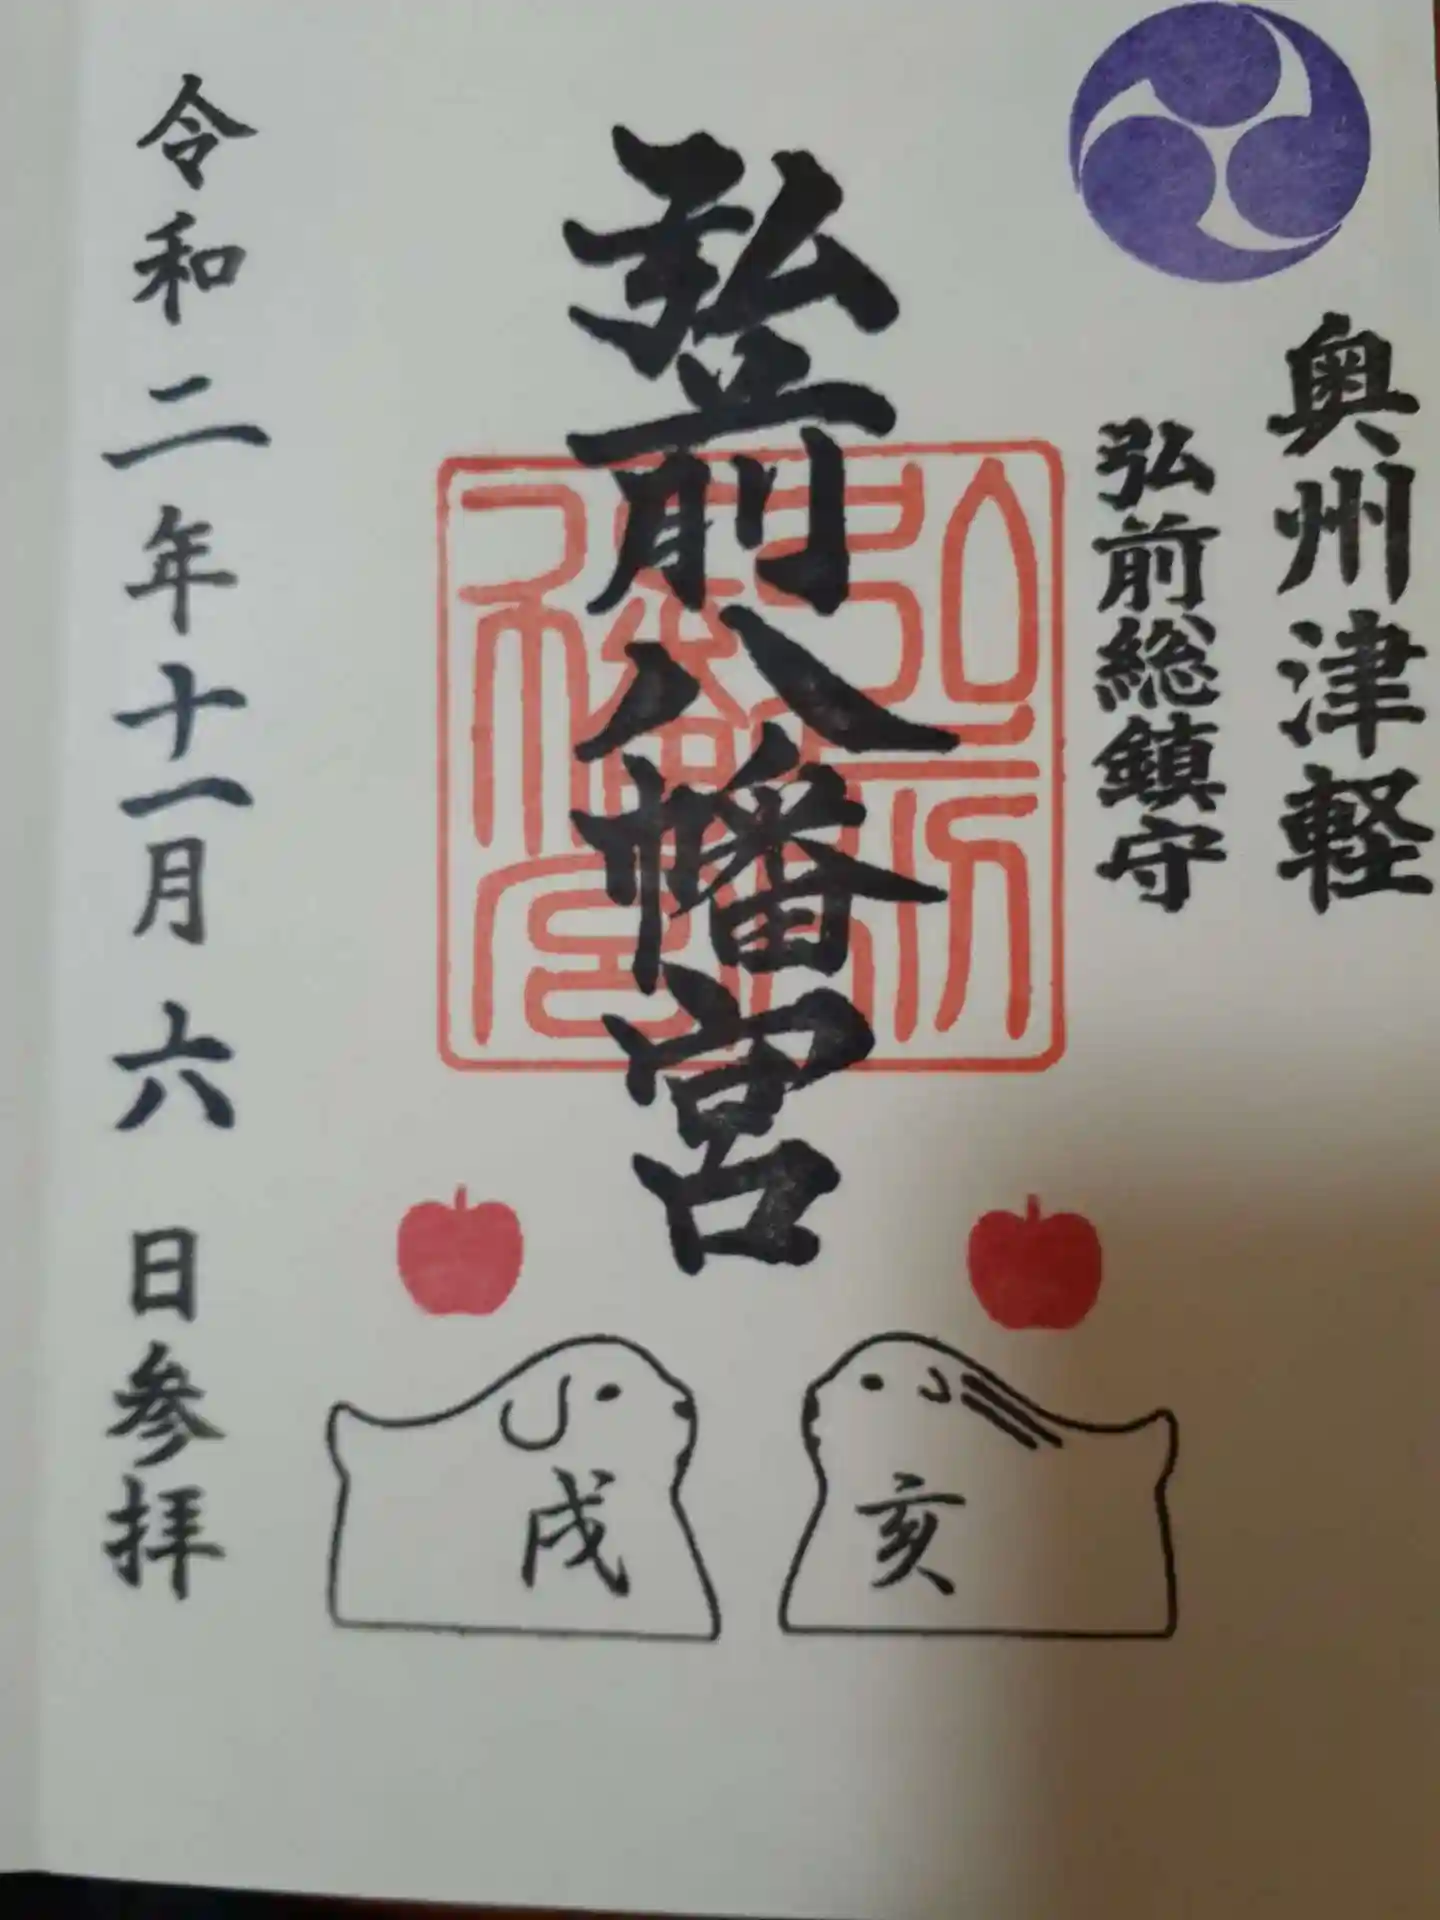 奥州津軽
弘前総鎮守
弘前八幡宮
令和二年十一月六日参拝
戌
亥